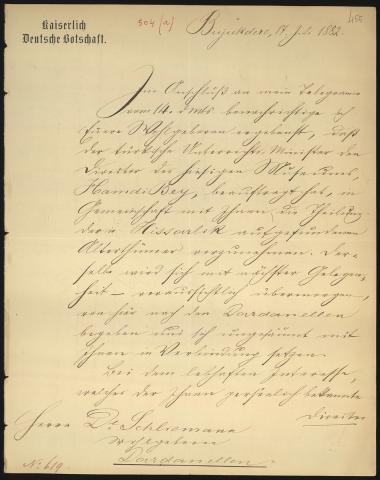 Kaiserlich
Deutsche Botschaft.
504 (a)
455
Bujukdere, 17. Juli 1882.
Im Anschluß an mein Telegramm
vom 14. d Mts benachrichtige ich
Euere Wohlgeboren ergebenst, daß
der türkische Unterrichts-Minister den
Director des hiesigen Museums,
Hamdi Bey, beauftragt hat, in
Gemeinschaft mit Ihnen die Theilung
der in Hissarlik aufgefundenen
Alterthümer vorzunehmen. Der-
selbe wird sich mit nächster Gelegen-
heit – voraussichtlich übermorgen,
von hier nach den Dardanellen
begeben und sich ungesäumt mit
Ihnen in Verbindung setzen.
Bei dem lebhaften Interesse,
welches der Ihnen persönlich bekannte
Director
Herrn Dr Schliemann
Wohlgeboren
Dardanellen
No: 619